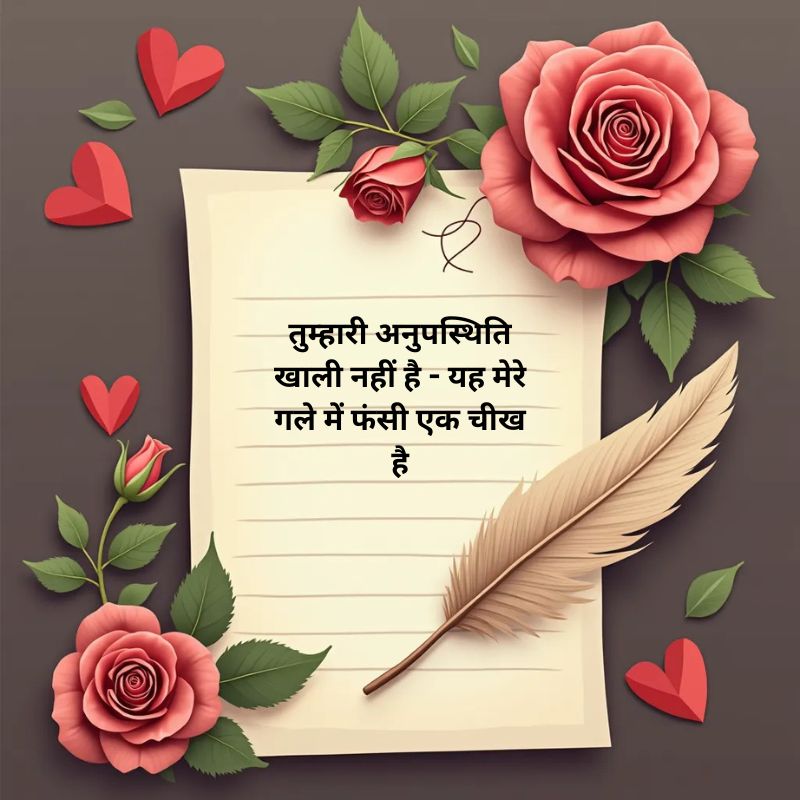 तुम्हारी अनुपस्थिति
खाली नहीं है - यह मेरे
गले में फंसी एक चीख
है